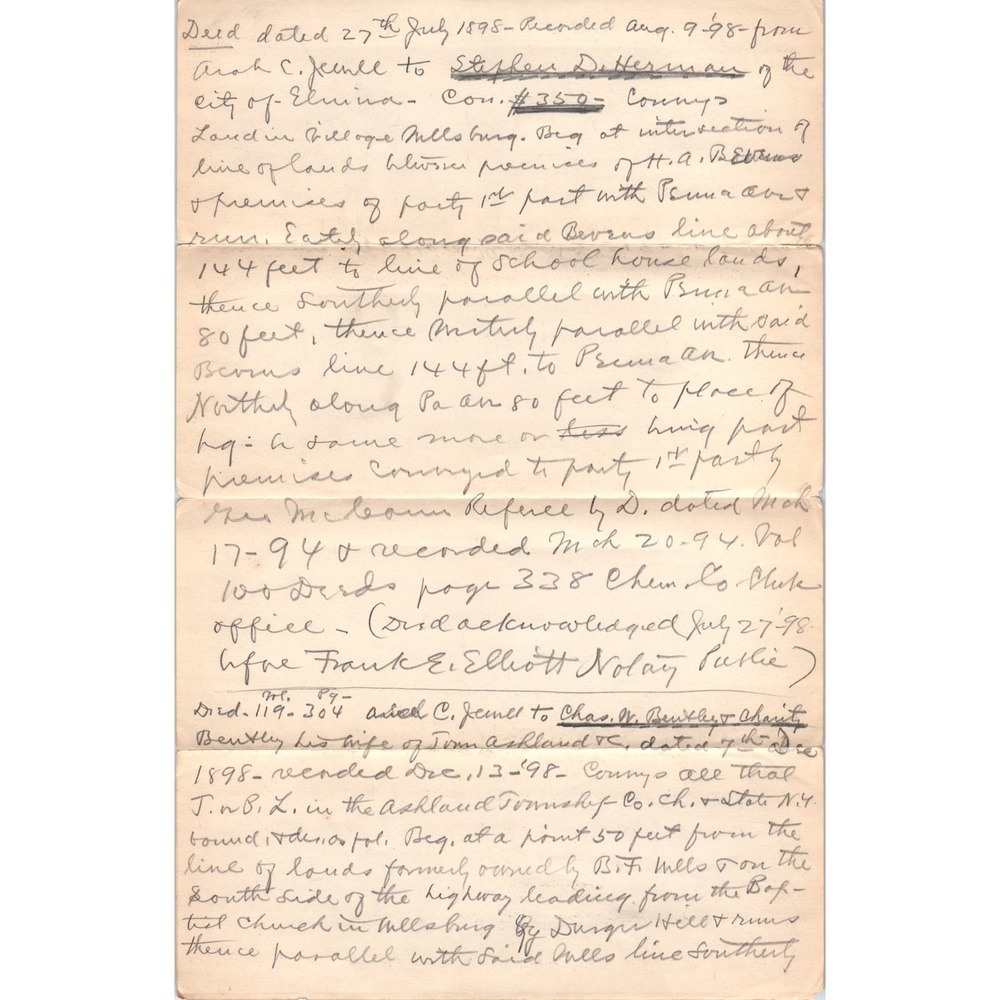 Deed dated 27th July 1898 - Recorded Aug. 9-'98 - from
Arah C. Jewell to Stephen D. Herman of the
city of Elmira - Con. #350 - Conveys
Land in Village Wellsburg. Beg at intersection of
line of lands between premises of H. A. Bevens
& premises of party 1st part with Penna Ave &
run. Eastly along said Bevens line about
144 feet to line of School house lands,
thence Southerly parallel with Penna Av
80 feet, thence Westerly parallel with said
Bevens line 144 ft. to Penna Av. thence
Northerly along Pa Av 80 feet to place of
bg - be same more or less being part
premises conveyed to party 1st part by
Geo McCann Referee by D. dated Mch
17-94 & recorded Mch 20-94. Vol
100 Deeds page 338 Chem. Co. Clerk
office - (Deed acknowledged July 27-'98.
before Frank E. Elliott Notary Public)
Vol. Pg -
Deed - 119 - 304 C. Jewell to Chas. W. Bentley & Charity
Bentley his wife of Town Ashland &c. dated 7th Dec
1898 - recorded Dec. 13-'98 - Conveys all that
T. or P. L. in the Ashland Township Co. Ch. & State N.Y.
bound. & des. as fol. Beg. at a point 50 feet from the
line of lands formerly owned by B. F. Wells & on the
South side of the highway leading from the Bap-
tist Church in Wellsburg by Hill & runs
thence parallel with said Wells line Southerly